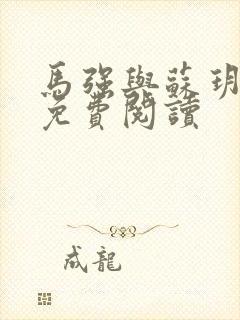 馬強與蘇玥
免費閱讀
成龍